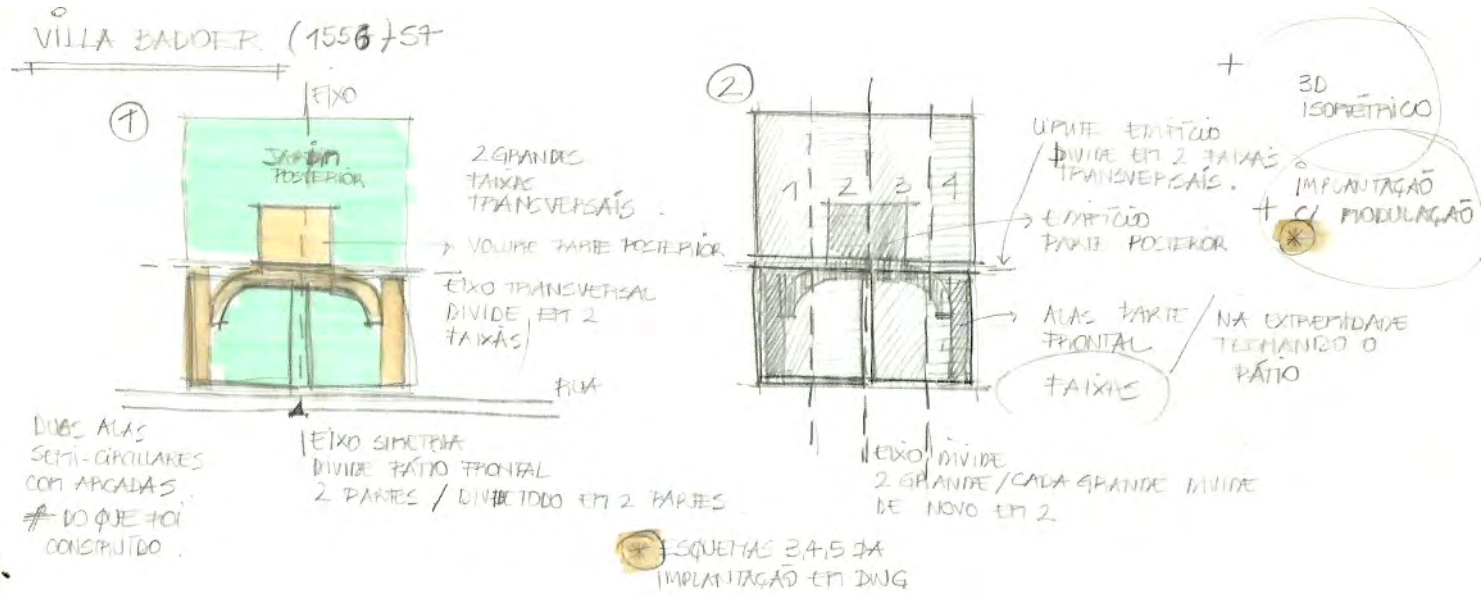 VILLA BADOER (1556)57
1
EIXO
JARDIM
POSTERIOR
2 GRANDES
FAIXAS
TRANSVERSAIS.
VOLUME PARTE POSTERIOR
EIXO TRANSVERSAL
DIVIDE EM 2
FAIXAS
RUA
DUAS ALAS
SEMI-CIRCULARES
COM ARCADAS
≠ DO QUE FOI
CONSTRUÍDO.
EIXO SIMETRIA
DIVIDE PÁTIO FRONTAL
2 PARTES / DIVIDE TODO EM 2 PARTES
2
1 2 3 4
LIMITE EDIFÍCIO
DIVIDE EM 2 FAIXAS
TRANSVERSAIS.
EDIFÍCIO
PARTE POSTERIOR
ALAS PARTE
FRONTAL
FAIXAS
NA EXTREMIDADE
FECHANDO O
PÁTIO
EIXO DIVIDE
2 GRANDE / CADA GRANDE DIVIDE
DE NOVO EM 2
+ 3D
ISOMÉTRICO
+ IMPLANTAÇÃO
C/ MODULAÇÃO
*
* ESQUEMAS 3,4,5 DA
IMPLANTAÇÃO EM DWG